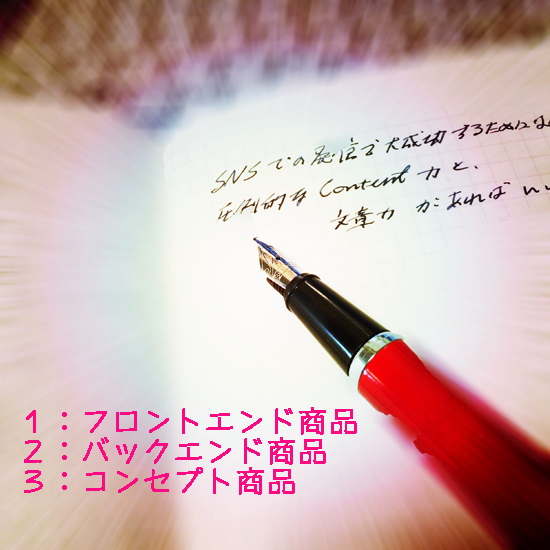 SNSでの発信で大成功するためには
圧倒的なContent力と、
文章力があればいい
1：フロントエンド商品
2：バックエンド商品
3：コンセプト商品